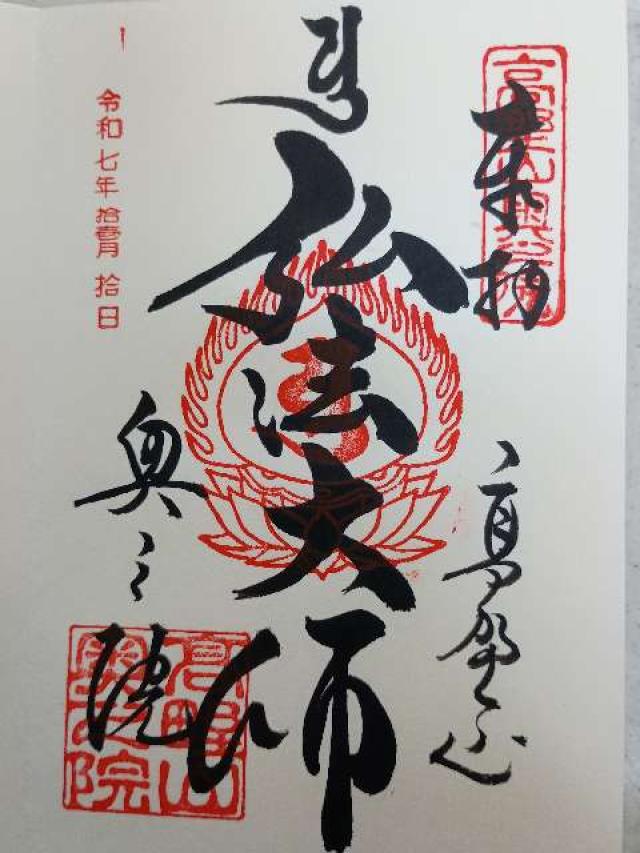 奉拝
高野山
弘法大師
奥之院
令和七年拾壹月拾日
高野山奥之院
高野山奥之院